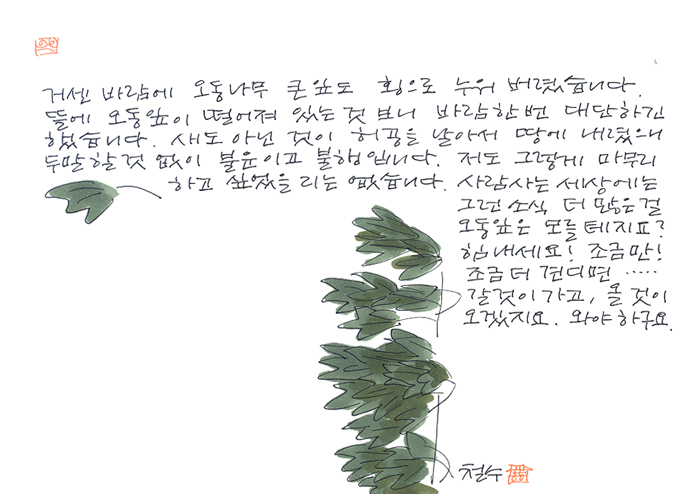 거센 바람에 오동나무 큰 잎도 횡으로 누워 버렸습니다.
뜰에 오동잎이 떨어져 있는 것 보니 바람 한번 대단하긴
했습니다. 새도 아닌 것이 허공을 날아서 땅에 내렸으니
두말 할 것 없이 불운이고 불행입니다. 저도 그렇게 마무리
하고 싶었을 리는 없습니다. 사람 사는 세상에는
그런 소식 더 많은 걸
오동잎은 모를 테지요?
힘내세요! 조금만!
조금 더 견디면 ……
갈 것이 가고, 올 것이
오겠지요. 와야 하구요.
철수